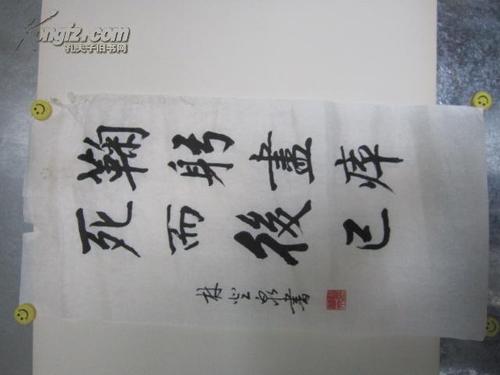 Kongfz.com
孔夫子旧书网
鞠躬盡瘁
死而後已
林 泉書